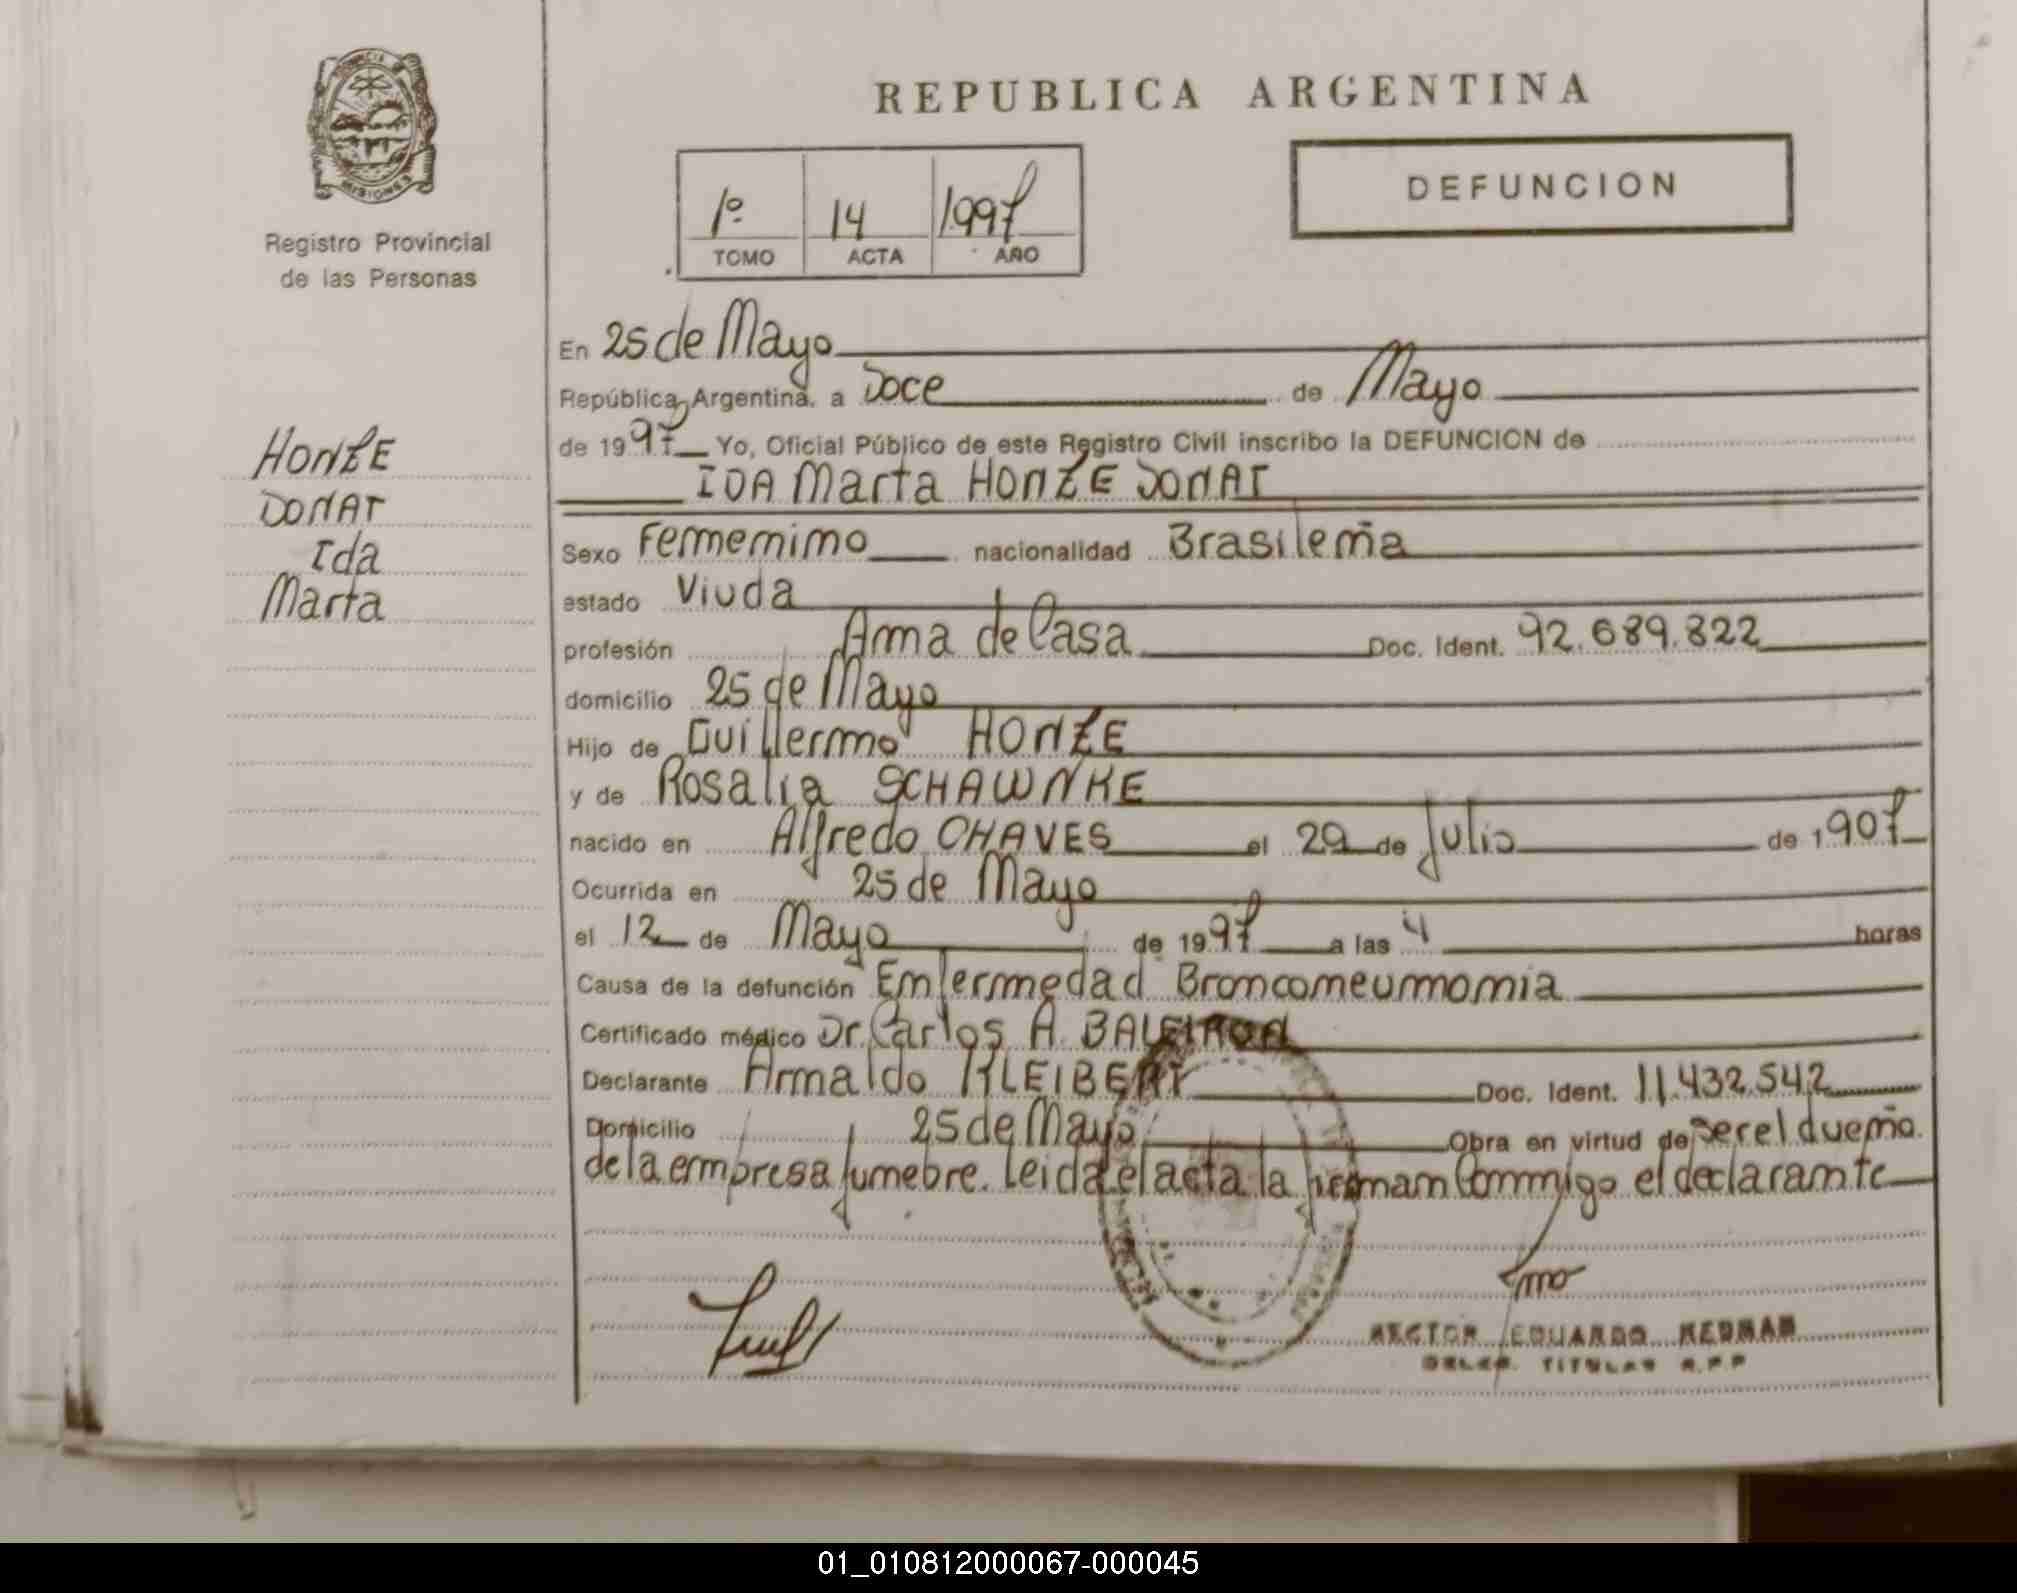 REPUBLICA ARGENTINA
PROVINCIA DE
MISIONES
Registro Provincial
de las Personas
1º 14 1997
TOMO ACTA AÑO
DEFUNCION
HONZE
DONAT
Ida
Marta
En 25 de Mayo
República Argentina, a Doce de Mayo
de 1997 Yo, Oficial Público de este Registro Civil inscribo la DEFUNCION de
IDA Marta HONZE DONAT
Sexo Femenino nacionalidad Brasileña
estado Viuda
profesión Ama de Casa Doc. Ident. 92.689.822
domicilio 25 de Mayo
Hijo de Guillermo HONZE
y de Rosalia SCHAWNKE
nacido en Alfredo CHAVES el 29 de Julio de 1907
Ocurrida en 25 de Mayo
el 12 de Mayo de 1997 a las 4 horas
Causa de la defunción Enfermedad Bronconeumonia
Certificado médico Dr. Carlos A.
Declarante Arnaldo KLEIBERT Doc. Ident. 11.432.542
Domicilio 25 de Mayo Obra en virtud de ser el dueño
de la empresa funebre. Leida el acta la firman Conmigo el declarante
HECTOR EDUARDO
TITULAR R.P.P
01_010812000067-000045